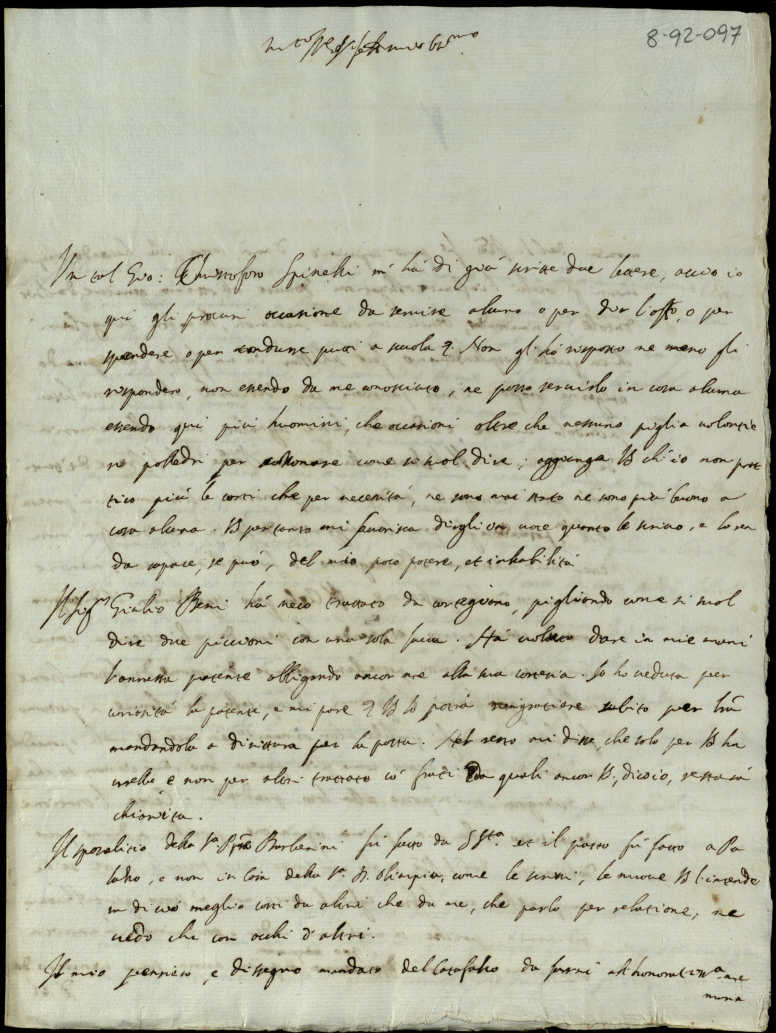 8-92-097
Un tal Gio: Christoforo Spinelli m'hà di già scritte due lettere, acciò io
qui gli procuri occasione da servire alcuno o per dir l'offo, o per
spendere o per condurre putti a scuola. Non gl'hò risposto ne meno gli
risponderò, non essendo da me conosciuto, ne posso servirlo in cosa alcuna
essendo qui più huomini, che occasioni oltre che nessuno piglia volontie
ri polledri per come si suol dire; aggiunga VS ch'io non prat
tico più le corti che per necessità, ne sono mai stato ne sono più buono a
cosa alcuna. VS per tanto mi favorisca dirgli in voce quanto le scrivo, e lo ren
da capace, se può, del mio poco potere, et inhabilità
Il Sigr Giulio Beni hà meco trattato da cortegiano, pigliando come si suol
dire due piccioni con una sola fava. Hà voluto dare in mie mani
l'annessa patente obligando ancor me alla sua cortesia. Io ho veduta per
curiosità la patente, e mi pare VS lo potrà rengratiare subito per lra
mandandola a dirittura per la posta. Nel resto mi disse, che solo per VS ha
e non per altri trattato co' frati da quali ancor VS, dic'io, restarà
chiarita.
Il sponalitio della Sra Barberini fù fatto da SStà et il pasto fù fatto a Pa
lazzo, e non in Casa della Sra D. Olimpia, come le scrissi, le nuove VS l'intende
rà di ciò meglio costì da altri che da me, che parlo per relatione, ne
vedo che con occhi d'altri.
Il mio pensiero, e dissegno mandato del Catafalco da farsi all'honoratissa me
moria